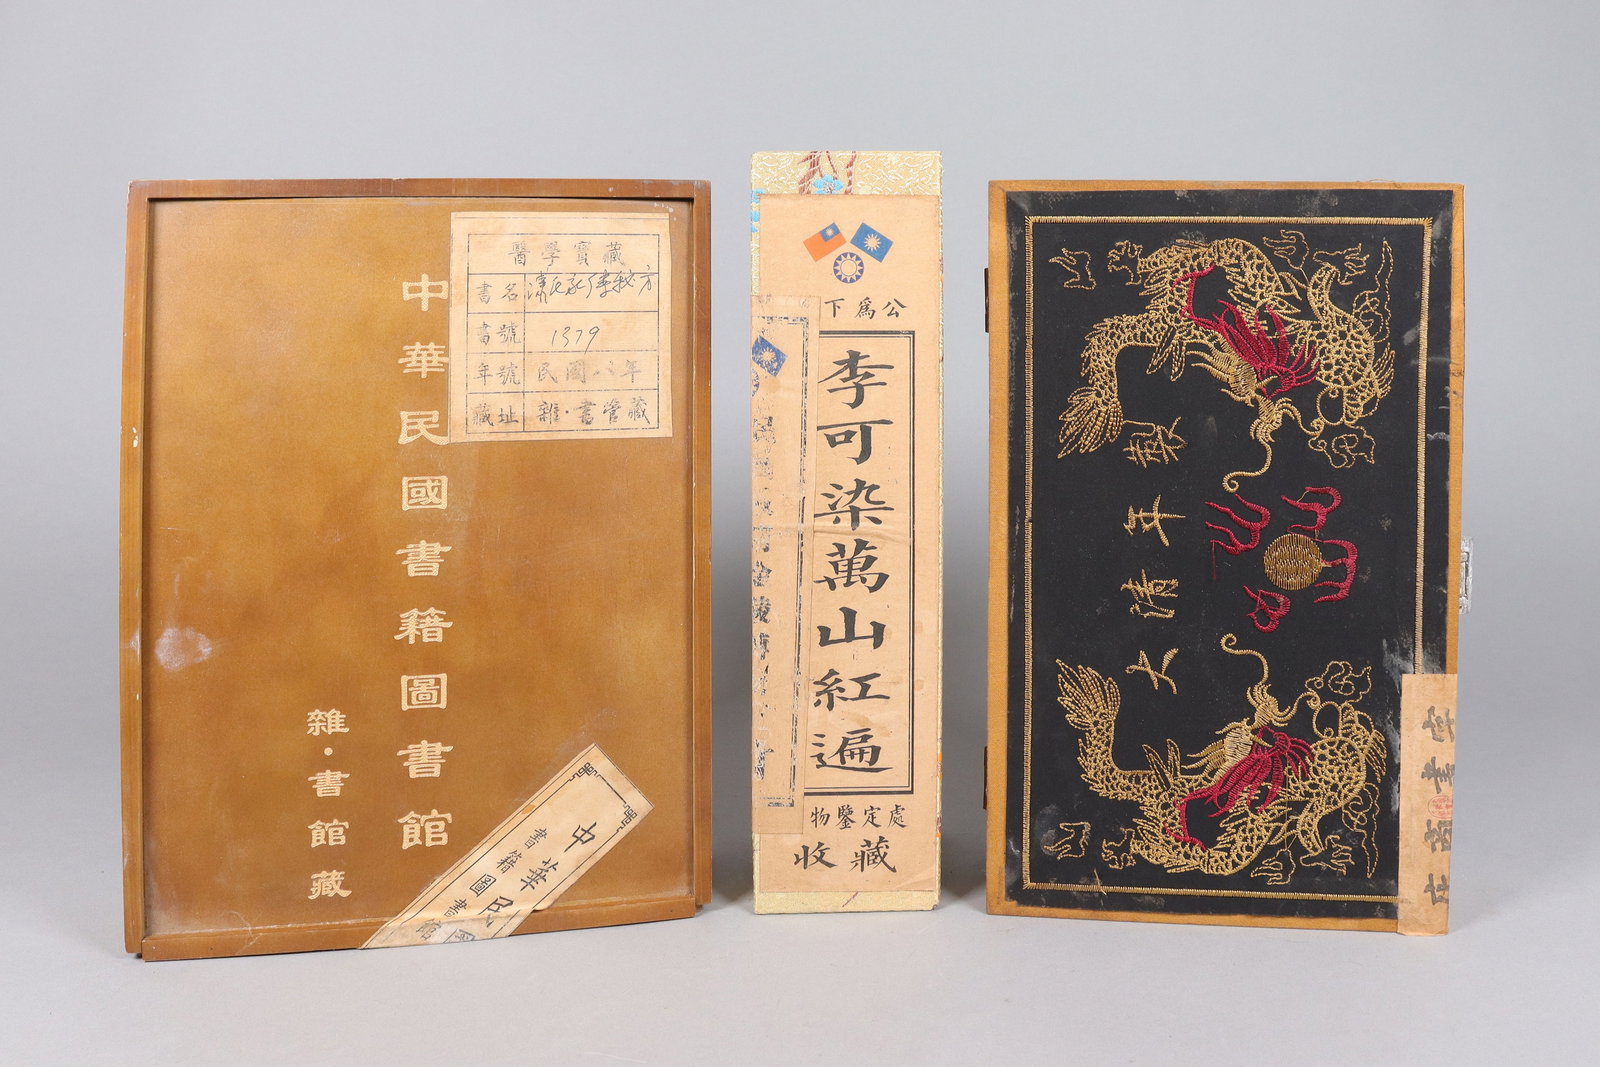 中華民國書籍圖書館
雜·書館藏
醫學寶藏
書名
秘方
書號 1379
年號 民國八年
藏址 雜·書管藏
中華民國
書籍圖書館
公爲下
李可染萬山紅遍
處定鑒物
收藏
大清年製